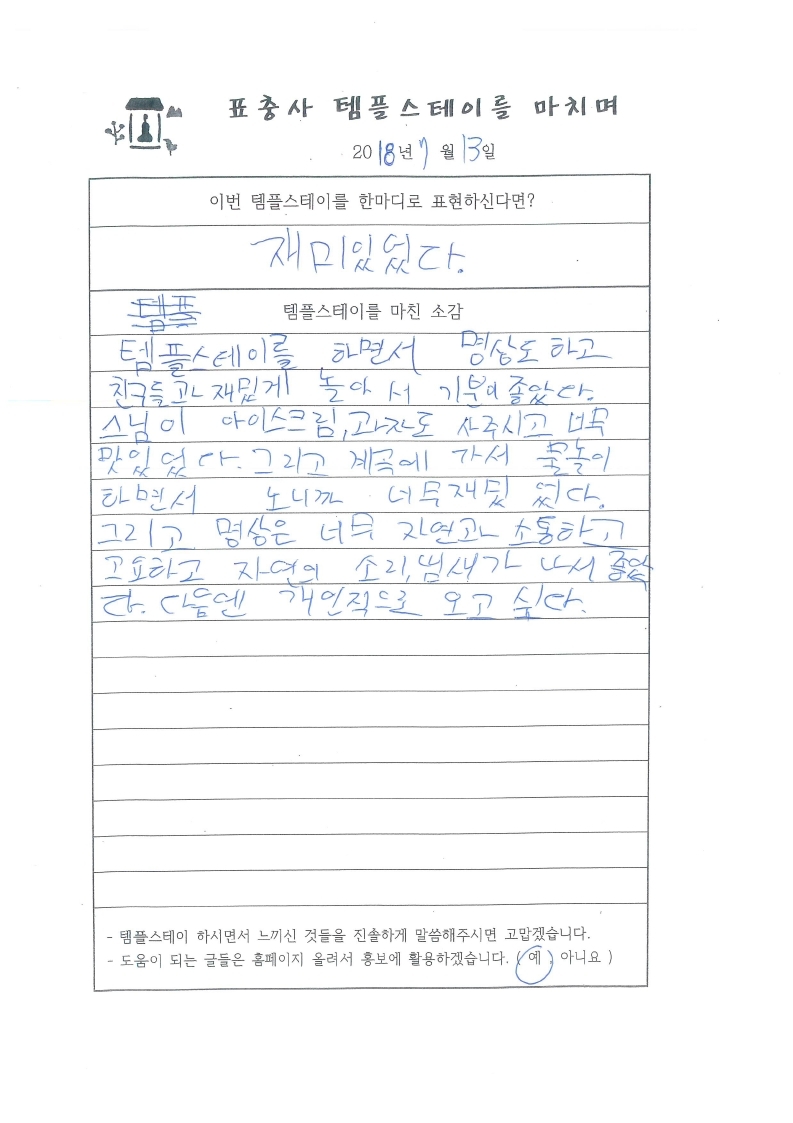 표충사 템플스테이를 마치며
2018년 7월 13일
이번 템플스테이를 한마디로 표현하신다면?
재미있었다.
템플
템플스테이를 마친 소감
템플스테이를 하면서 명상도 하고
친구들과 재밌게 놀아서 기분이 좋았다.
스님이 아이스크림, 과자도 사주시고
맛있었다. 그리고 계곡에 가서 물놀이
하면서 노니까 너무 재밌었다.
그리고 명상은 너무 자연과 소통하고
고요하고 자연의 소리, 냄새가 나서 좋았
다. 다음엔 개인적으로 오고 싶다.
- 템플스테이 하시면서 느끼신 것들을 진솔하게 말씀해주시면 고맙겠습니다.
- 도움이 되는 글들은 홈페이지 올려서 홍보에 활용하겠습니다. ( 예 , 아니요 )